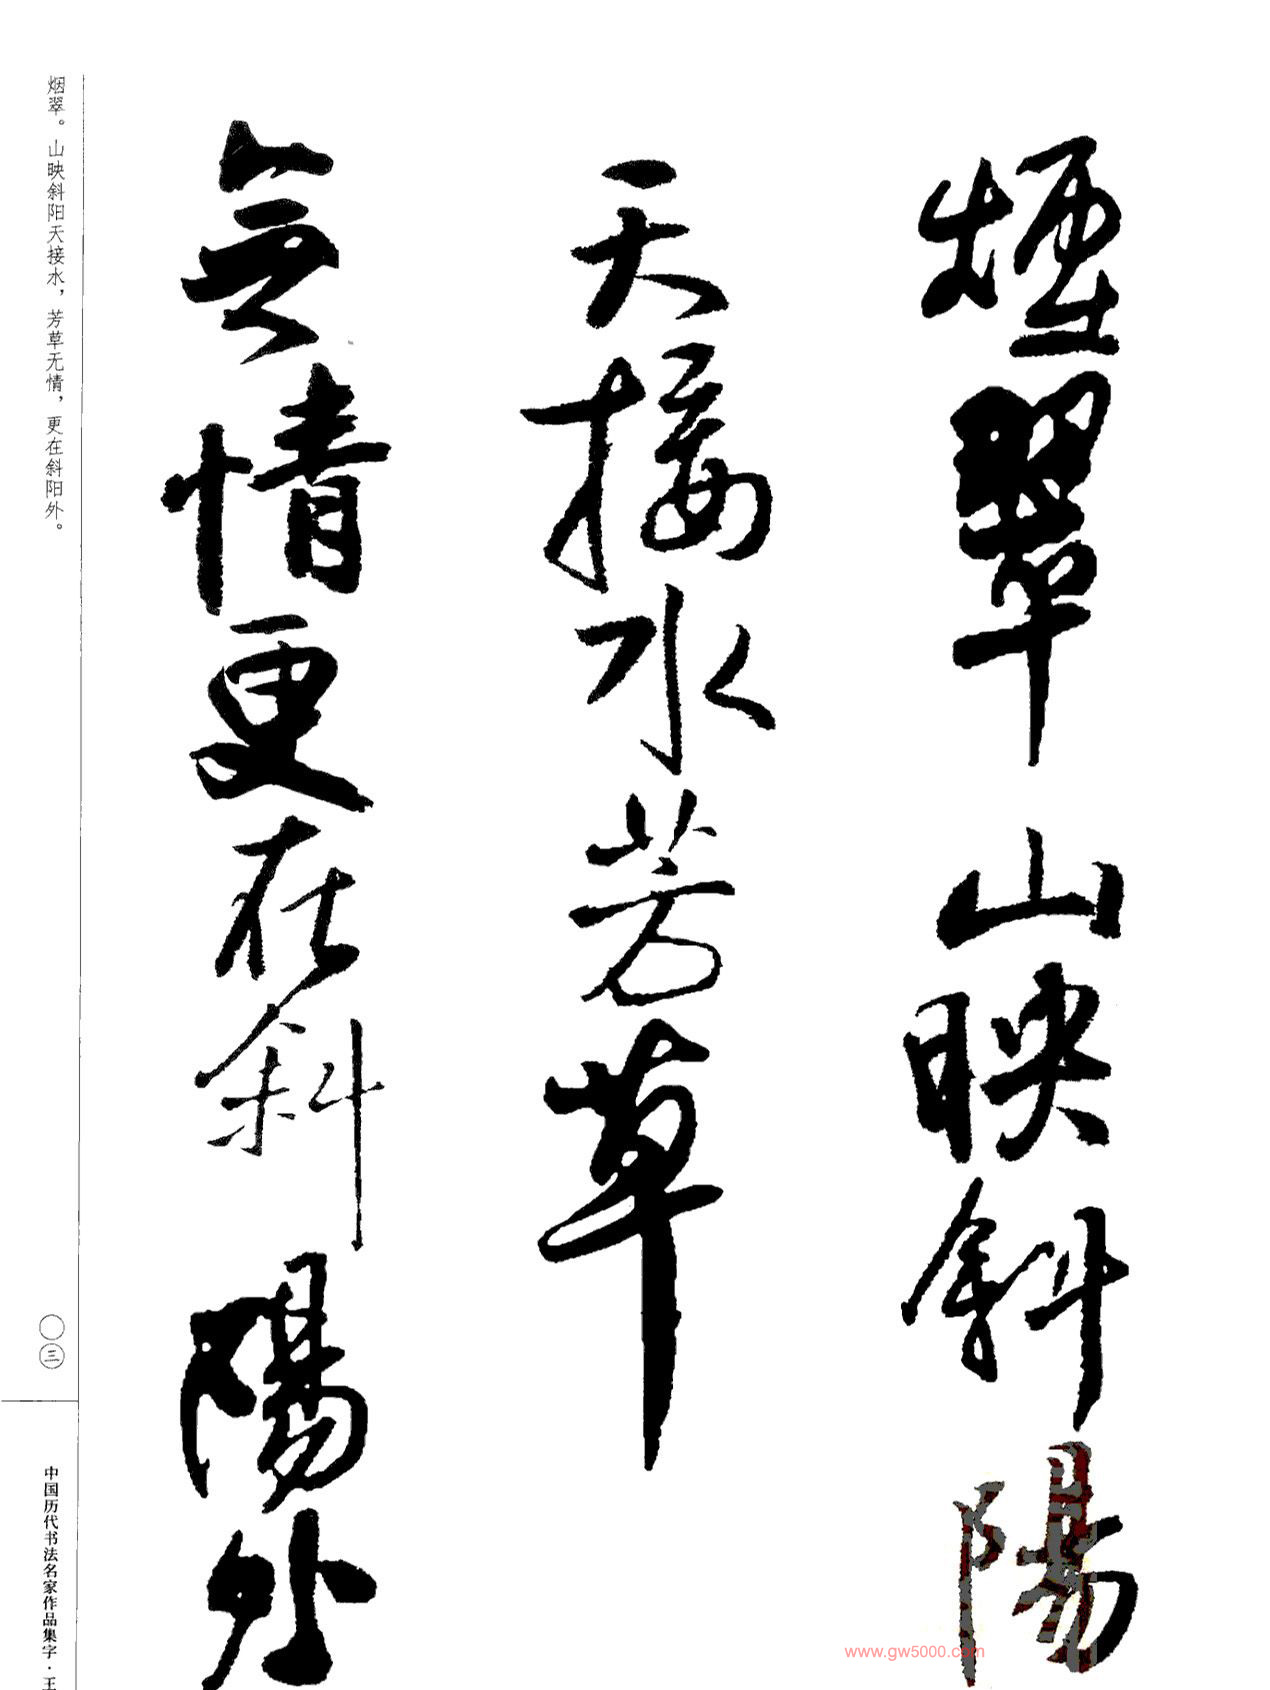 煙翠山映斜陽
天接水芳草
無情更在斜陽外
烟翠。山映斜阳天接水，芳草无情，更在斜阳外。
〇三
中国历代书法名家作品集字·王
www.gw5000.com